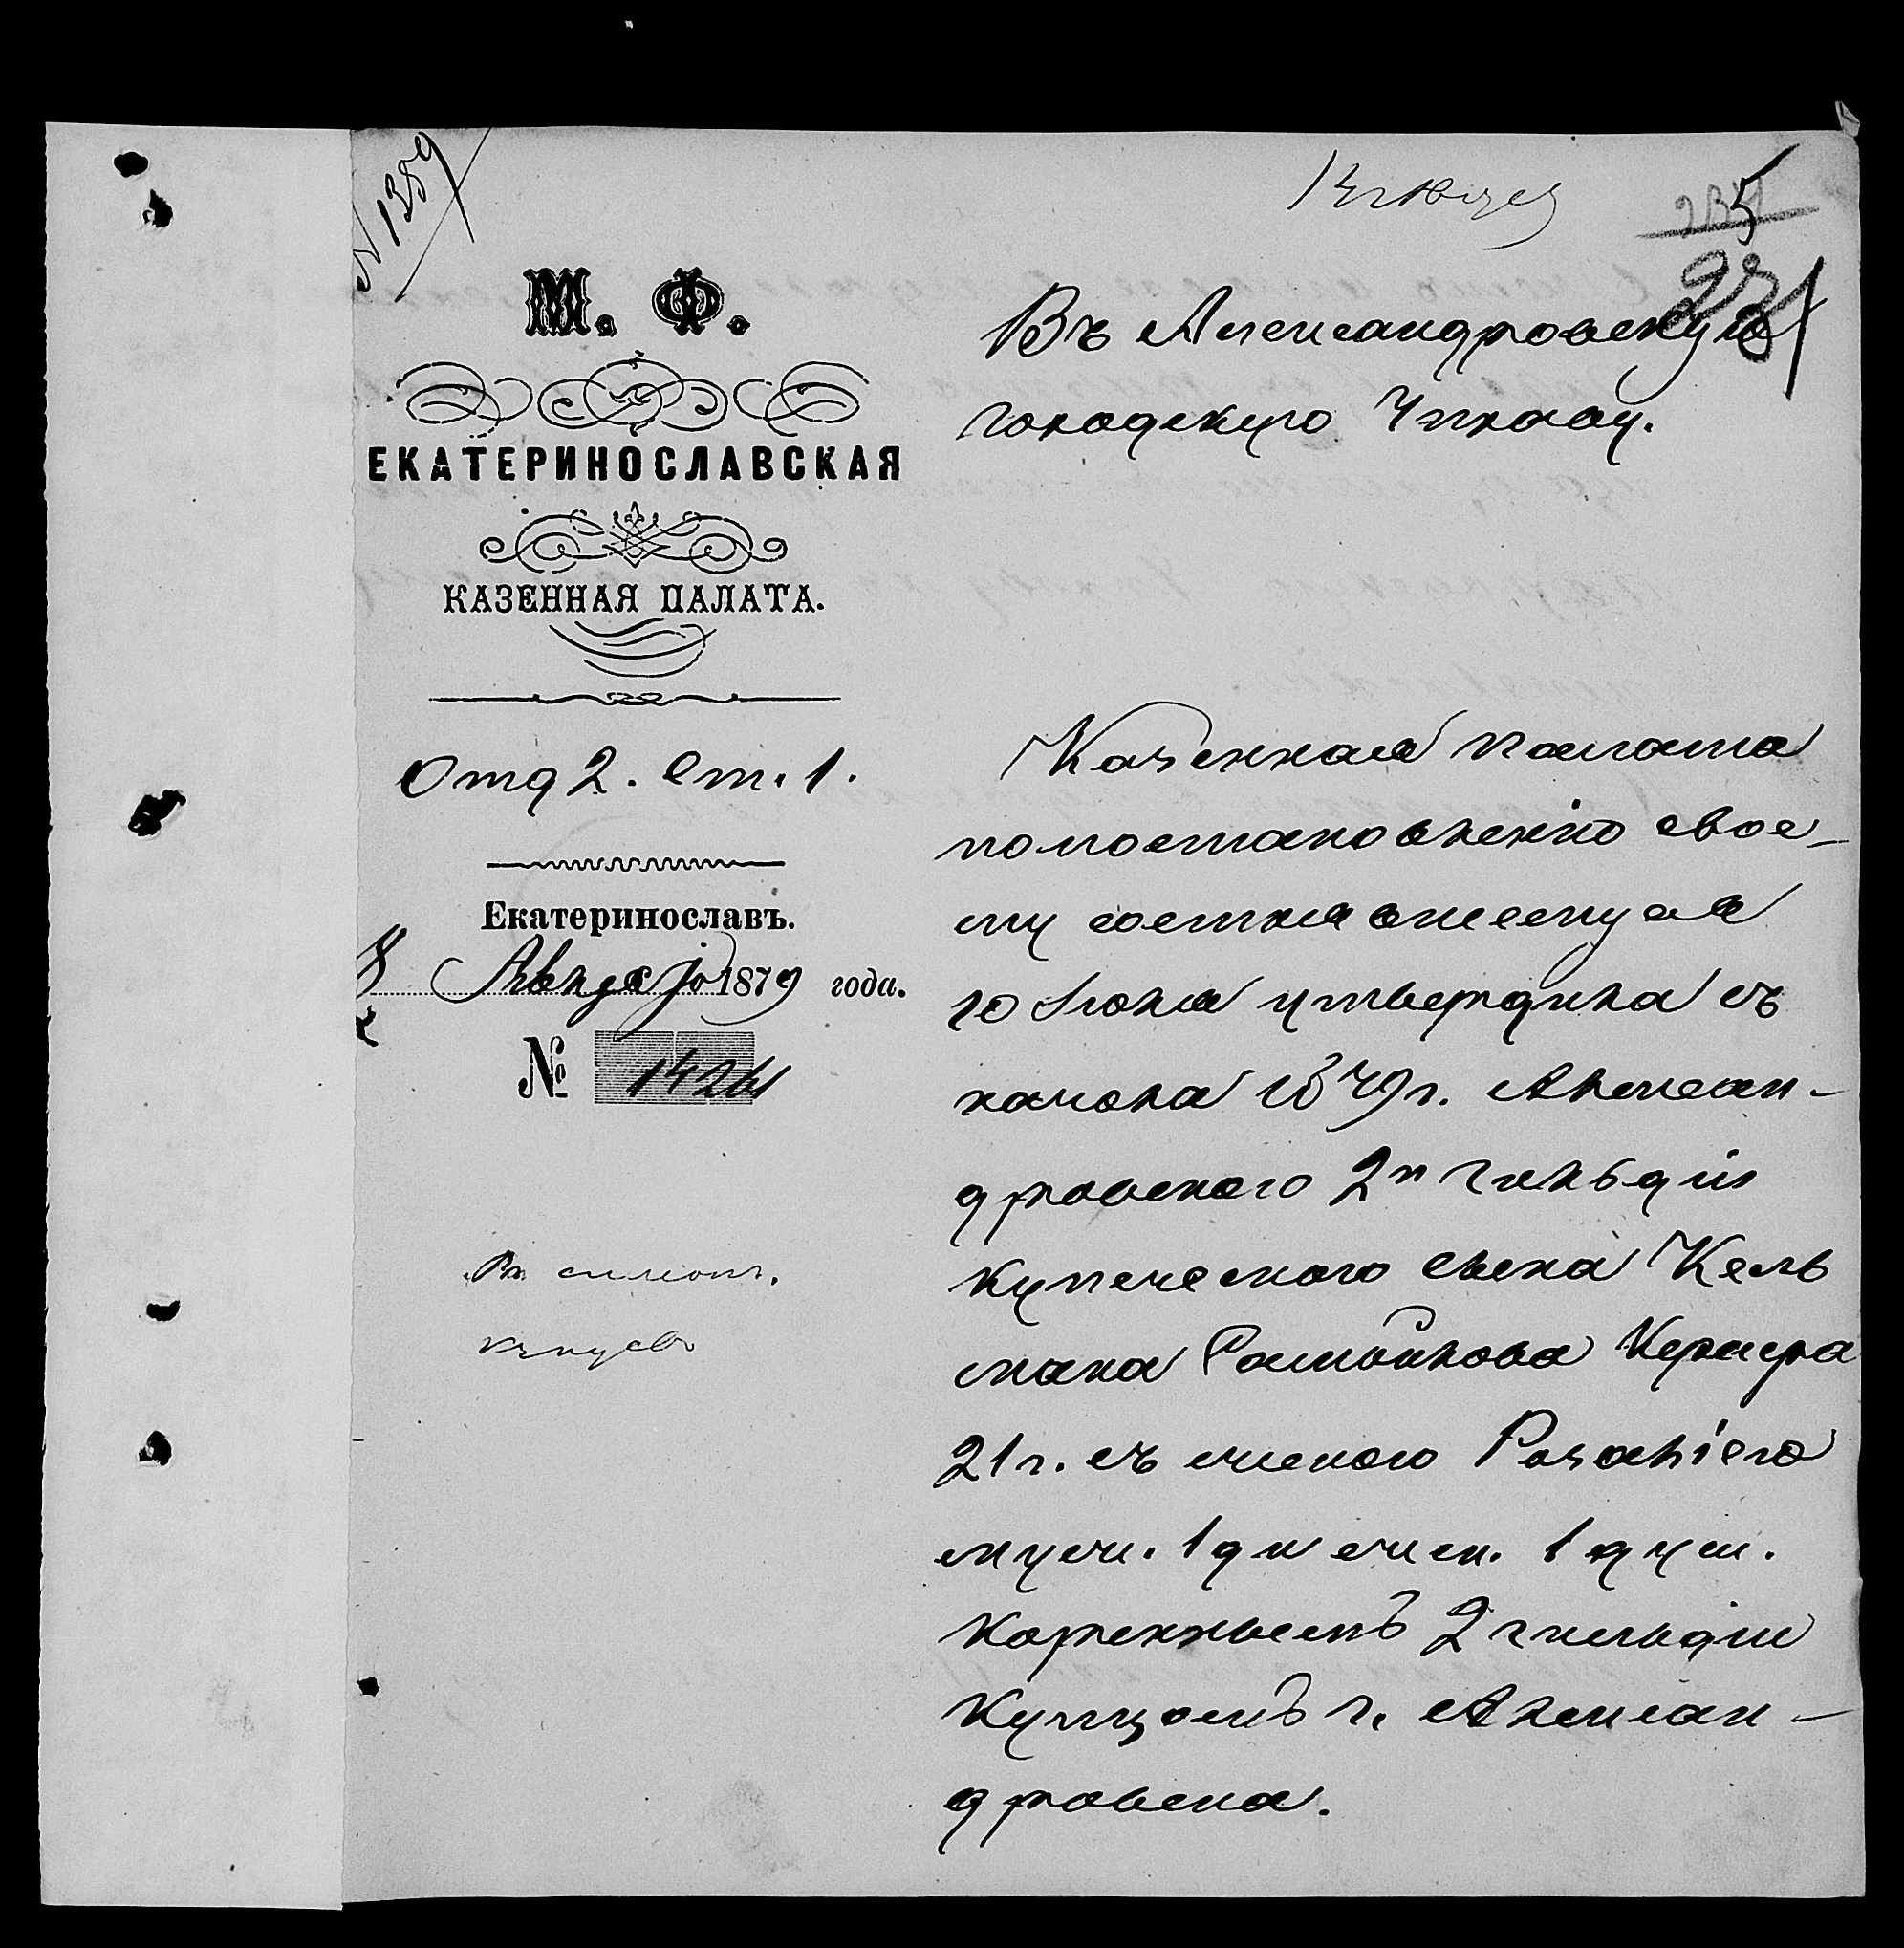 № 1389
5
231
М. Ф.
ЕКАТЕРИНОСЛАВСКАЯ
КАЗЕННАЯ ПАЛАТА.
Отд 2. Ст. 1.
Екатеринославъ.
1879 года.
№ 14261
Въ списокъ.
купцовъ
Въ Александровскую
городскую Управу.
Казенная палата
по постановленію свое-
му состоявшемуся
10 Іюня утвердила съ
начала 1879 г. Алексан-
дровскаго 2й гильдіи
купеческаго сына Кель
мана Самойлова Кернера
21 г. съ женою Розаліею
муж. 1 д и жен. 1 душ.
кореннымъ 2 гильдіи
купцомъ г. Алексан-
дровска.